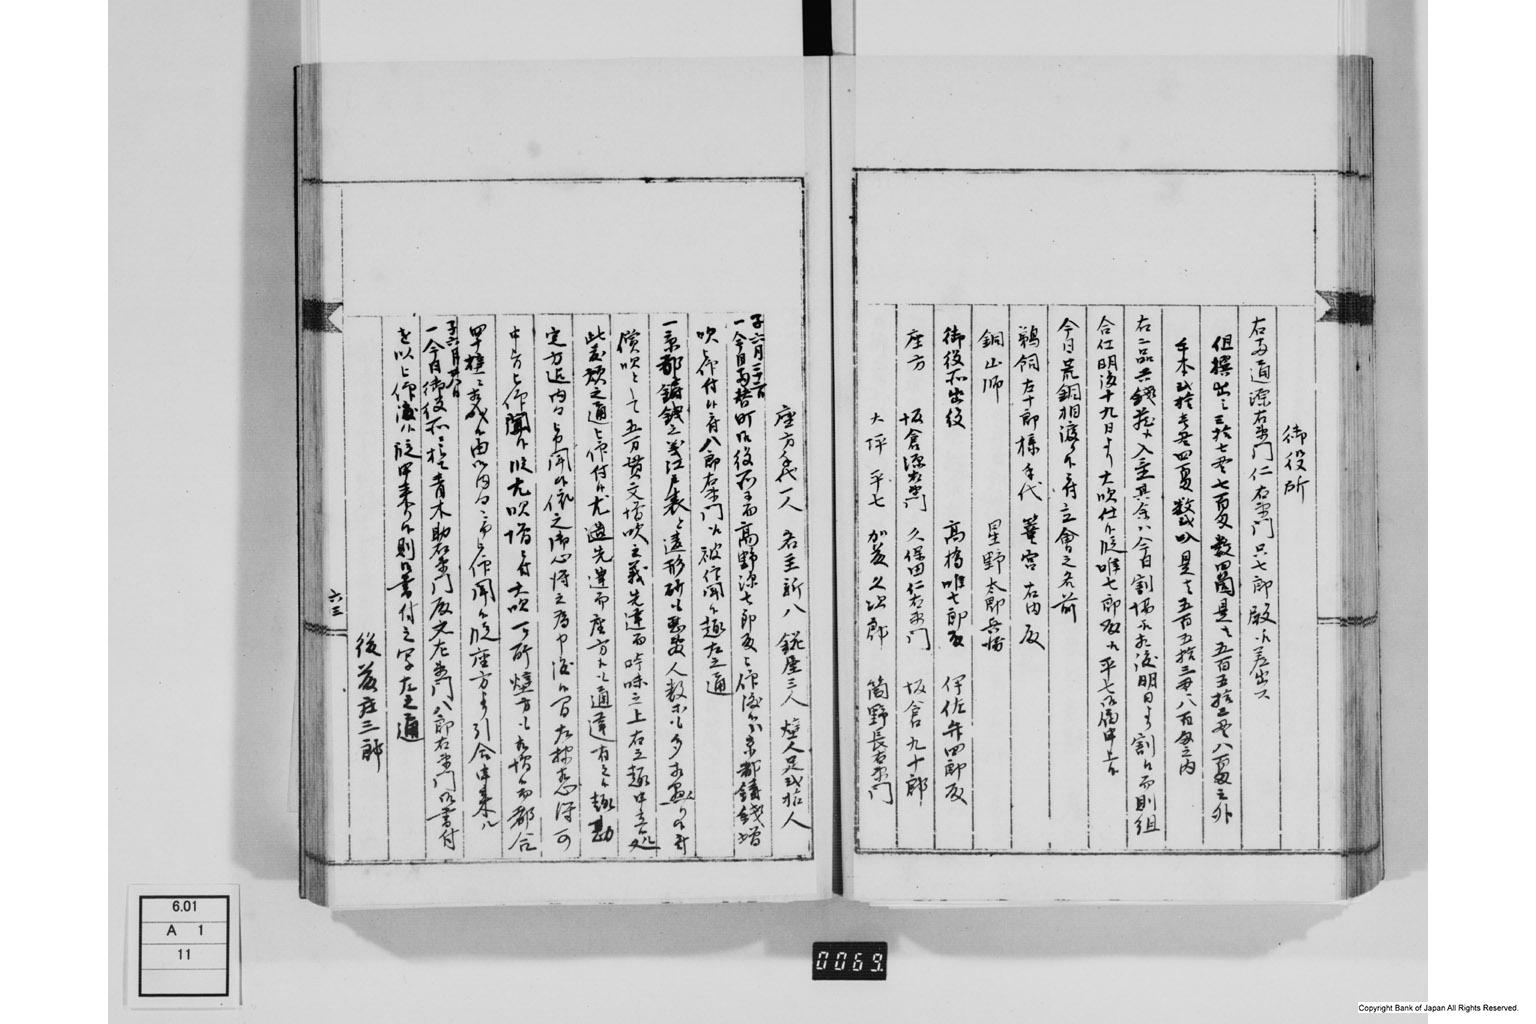 御役所
右両通源右衛門仁右衛門只七郎殿江差出ス
但撰出シ三拾七貫七百文数四箇是ハ五百五拾三貫八百文之外
手本弐拾壱貫四百文数弐〆是ハ五百五拾三貫八百文之内
右二品共銭蔵江入置其余ハ今日割場江相渡明日より割候而則組
合仕明後十九日より大吹仕候段唯七郎殿江平七罷届申上候
今日荒銅相渡り候ニ付立會之名前
鵜飼左十郎様手代 箕宮右内殿
銅山師 星野太郎兵衛
御役所出役 高橋唯七郎殿 伊佐弁四郎殿
座方 坂倉源右衛門 久保田仁右衛門 坂倉九十郎
大坪平七 加藤久次郎 筒野長右衛門
座方手代一人 名主新八 銭座三人 煙人足弐拾人
子六月二十二日
一今日両替町御役所ニ而高野源七郎殿被仰渡候京都鋳銭増
吹被仰付候ニ付八郎右衛門江被仰聞候趣左之通
一京都鋳銭之義江戸表と違形研も悪敷人数等も多相懸り候ニ付
償吹として五万貫文増吹之義先達而吟味之上右之趣申立候処
此度願之通被仰付候尤進先達而座方江も通達有之候趣勘
定方迄内々被仰聞候依之御心得之為申渡候間左様相心得可
申方被仰聞候段尤吹増ニ付大吹所煙方も相増候而都合
四十樋ニ相成候由御内々ニ而被仰聞候段座方より引合申来ル
子六月廿八日
一今日御役所江於青木助右衛門殿文左衛門八郎右衛門御書付
を以被仰渡候段申来り候則御書付之写左之通
六三
後藤庄三郎
6.01
A 1
11
0069
Copyright Bank of Japan All Rights Reserved.